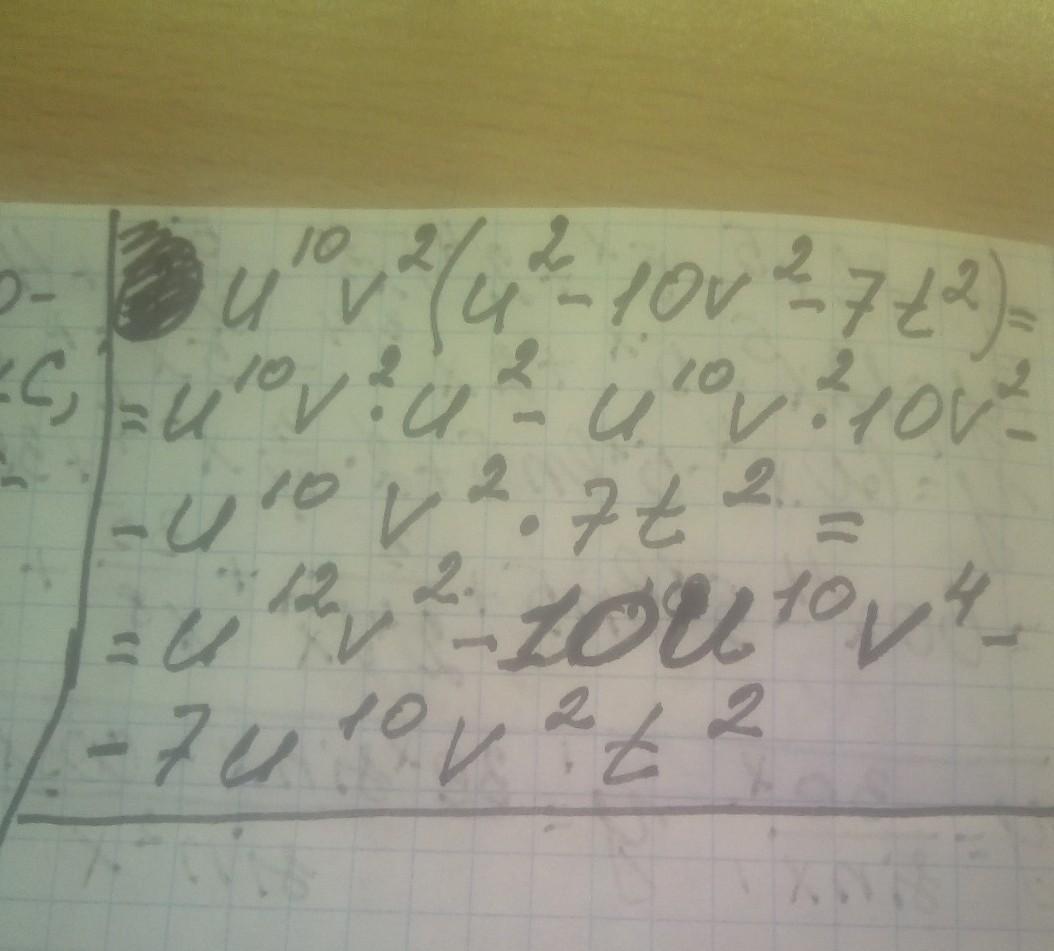 u¹⁰v²(u² - 10v² - 7t²) =
= u¹⁰v² · u² - u¹⁰v² · 10v² -
- u¹⁰v² · 7t² =
= u¹²v² - 10u¹⁰v⁴ -
- 7u¹⁰v²t²